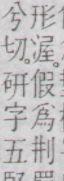 形渥。假爲㓝
兮切。研字五